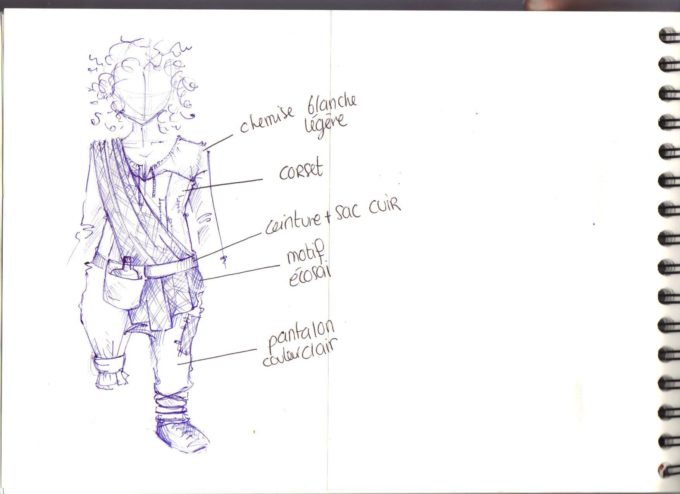 chemise blanche
légère
corset
ceinture + sac cuir
motif
écosai
pantalon
couleur clair